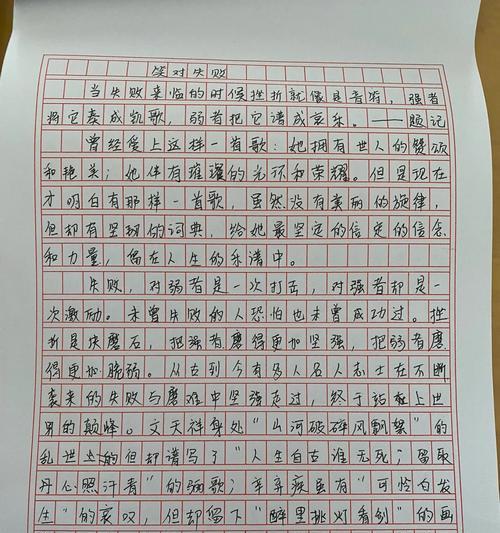 笑对失败
当失败来临的时候挫折就像是音符，强者
将它奏成凯歌，弱者把它谱成哀乐。——题记
曾经爱上这样一首歌：她拥有世人的赞颂
和艳美；她伴有璀璨的光环和荣耀。但是现在
才明白有那样一首歌，虽然没有美丽的旋律，
但却有坚韧的词典，给她最坚定的信定的信念
和力量，留在人生的乐谱中。
失败，对弱者是一次打击，对强者却是一
次激励。未曾失败的人恐怕也未曾成功过。挫
折是块磨石，把强者磨得更加坚强，把弱者磨
得更加脆弱。从古到今有多人名人志士在不断
袭来的失败与磨难中坚强走过，终于站在上世
界的颠峰。文天祥身处“山河破碎风飘絮”的
乱世 的但却谱写了“人生自古谁无死；留取
丹心照汗青”的 歌；辛弃疾虽有“可怜白发
生”的哀叹，但却留下“醉里挑灯看剑”的画